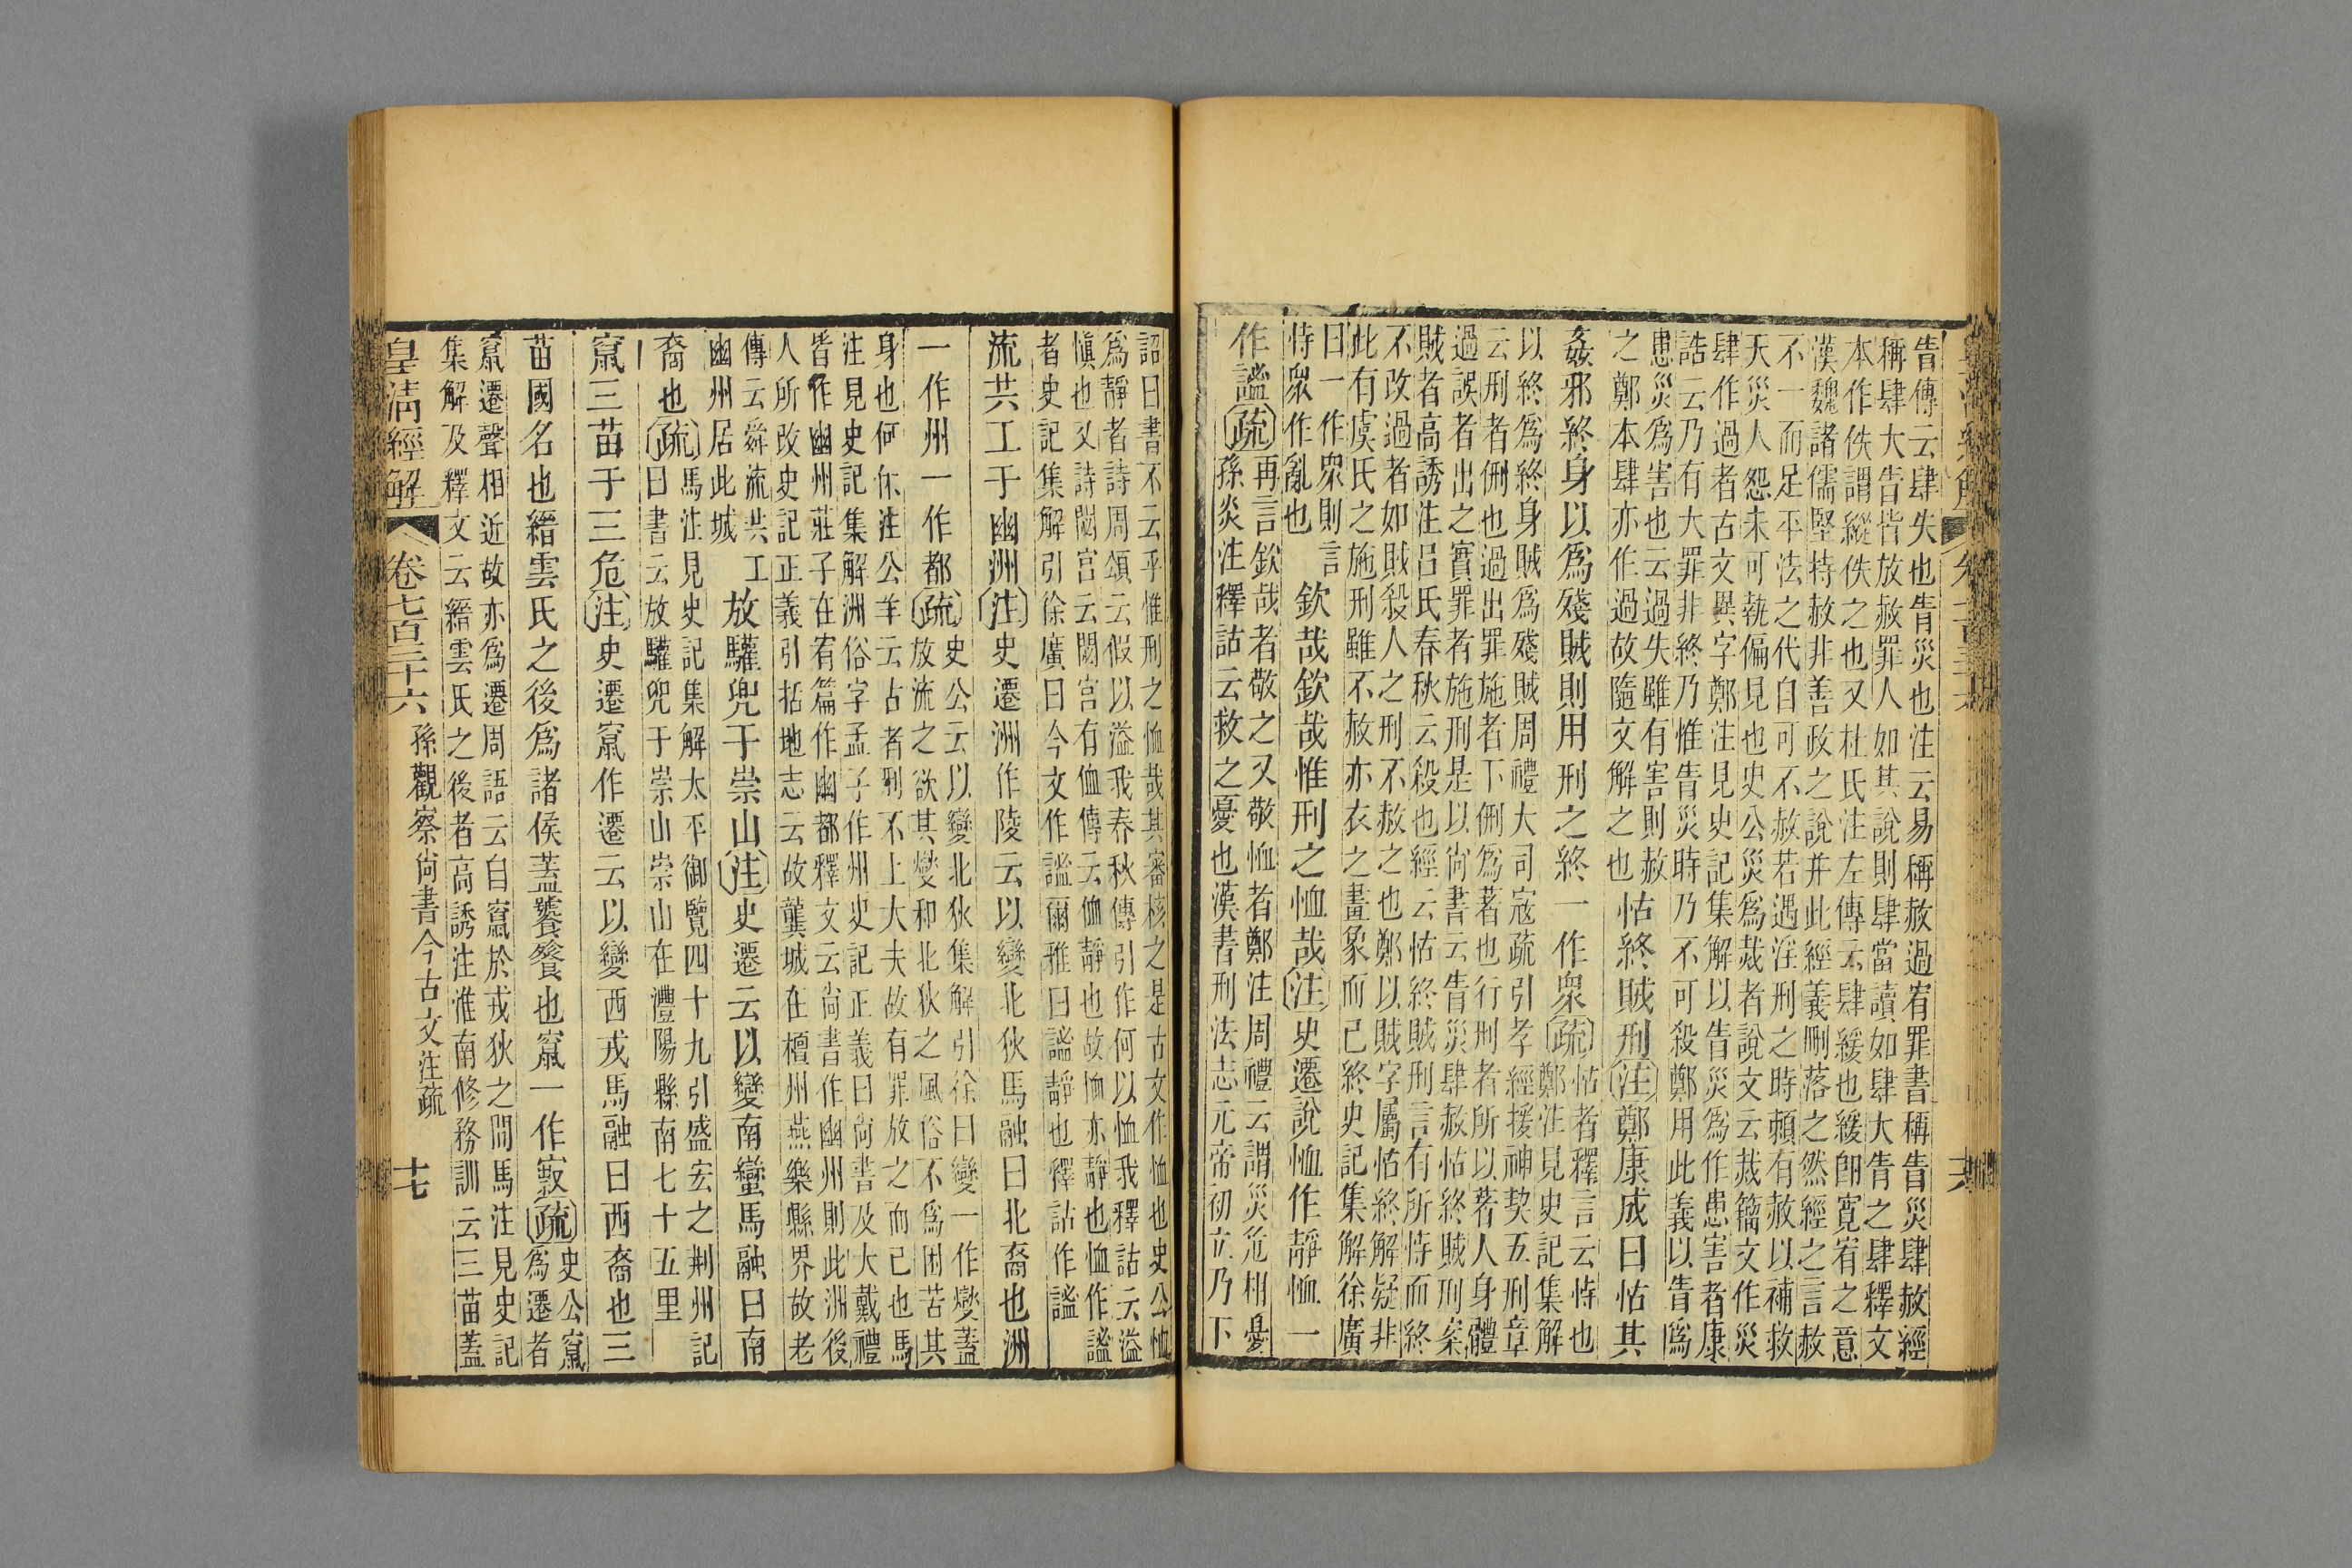 眚傳云肆失也眚災也注云易稱赦過宥罪書稱眚災肆赦經
稱肆大眚皆放赦罪人如其說則肆當讀如肆大眚之肆釋文
本作佚謂縱佚之也又杜氏注左傳云肆緩也緩卽寬宥之意
漢魏諸儒堅持赦非善政之說幷此經義刪落之然經之言赦
不一而足平法之代自可不赦若遇淫刑之時賴有赦以補救
天災人怨未可執偏見也史公災爲烖者說文云烖籀文作災
肆作過者古文異字鄭注見史記集解以眚災爲作患害者康
誥云乃有大罪非終乃惟眚災時乃不可殺鄭用此義以眚爲
患災爲害也云過失雖有害則赦
之鄭本肆亦作過故隨文解之也
怙終賊刑注鄭康成曰怙其
姦邪終身以爲殘賊則用刑之終一作衆疏
怙者釋言云恃也
鄭注見史記集解
以終爲終身賊爲殘賊周禮大司寇疏引孝經援神契五刑章
云刑者侀也過出罪施者下侀爲著也行刑者所以著人身體
過誤者出之實罪者施刑是以尙書云眚災肆赦怙終賊刑案
賊者高誘注呂氏春秋云殺也經云怙終賊刑言有所恃而終
不改過者如賊殺人之刑不赦之也鄭以賊字屬怙終解疑非
此有虞氏之施刑雖不赦亦衣之畫象而已終史記集解徐廣
曰一作衆則言
恃衆作亂也
欽哉欽哉惟刑之恤哉注史遷說恤作靜恤一
作謐疏
再言欽哉者敬之又敬恤者鄭注周禮云謂災危相憂
孫炎注釋詁云救之憂也漢書刑法志元帝初立乃下
詔曰書不云乎惟刑之恤哉其審核之是古文作恤也史公恤
爲靜者詩周頌云假以溢我春秋傳引作何以恤我釋詁云溢
愼也又詩閟宮云閟宮有侐傳云侐靜也故恤亦靜也恤作謐
者史記集解引徐廣曰今文作謐爾雅曰謐靜也釋詁作謐
流共工于幽洲注史遷洲作陵云以變北狄馬融曰北裔也洲
一作州一作都疏
史公云以變北狄集解引徐曰變一作燮蓋
放流之欲其燮和北狄之風俗不爲困苦其
身也何休注公羊云古者刑不上大夫故有罪放之而已也馬
注見史記集解洲俗字孟子作州史記正義曰尙書及大戴禮
皆作幽州莊子在宥篇作幽都釋文云尙書作幽州則此洲後
人所改史記正義引括地志云故龔城在檀州燕樂縣界故老
傳云舜流共工
幽州居此城
放驩兜于崇山注史遷云以變南蠻馬融曰南
裔也疏
馬注見史記集解太平御覽四十九引盛宏之荆州記
曰書云放驩兜于崇山崇山在澧陽縣南七十五里
竄三苗于三危注史遷竄作遷云以變西戎馬融曰西裔也三
苗國名也縉雲氏之後爲諸侯蓋饕餮也竄一作𥨥疏
史公竄
爲遷者
竄遷聲相近故亦爲遷周語云自竄於戎狄之間馬注見史記
集解及釋文云縉雲氏之後者高誘注淮南修務訓云三苗蓋
皇淸經解 卷七百三十六 孫觀察尙書今古文注疏 十七